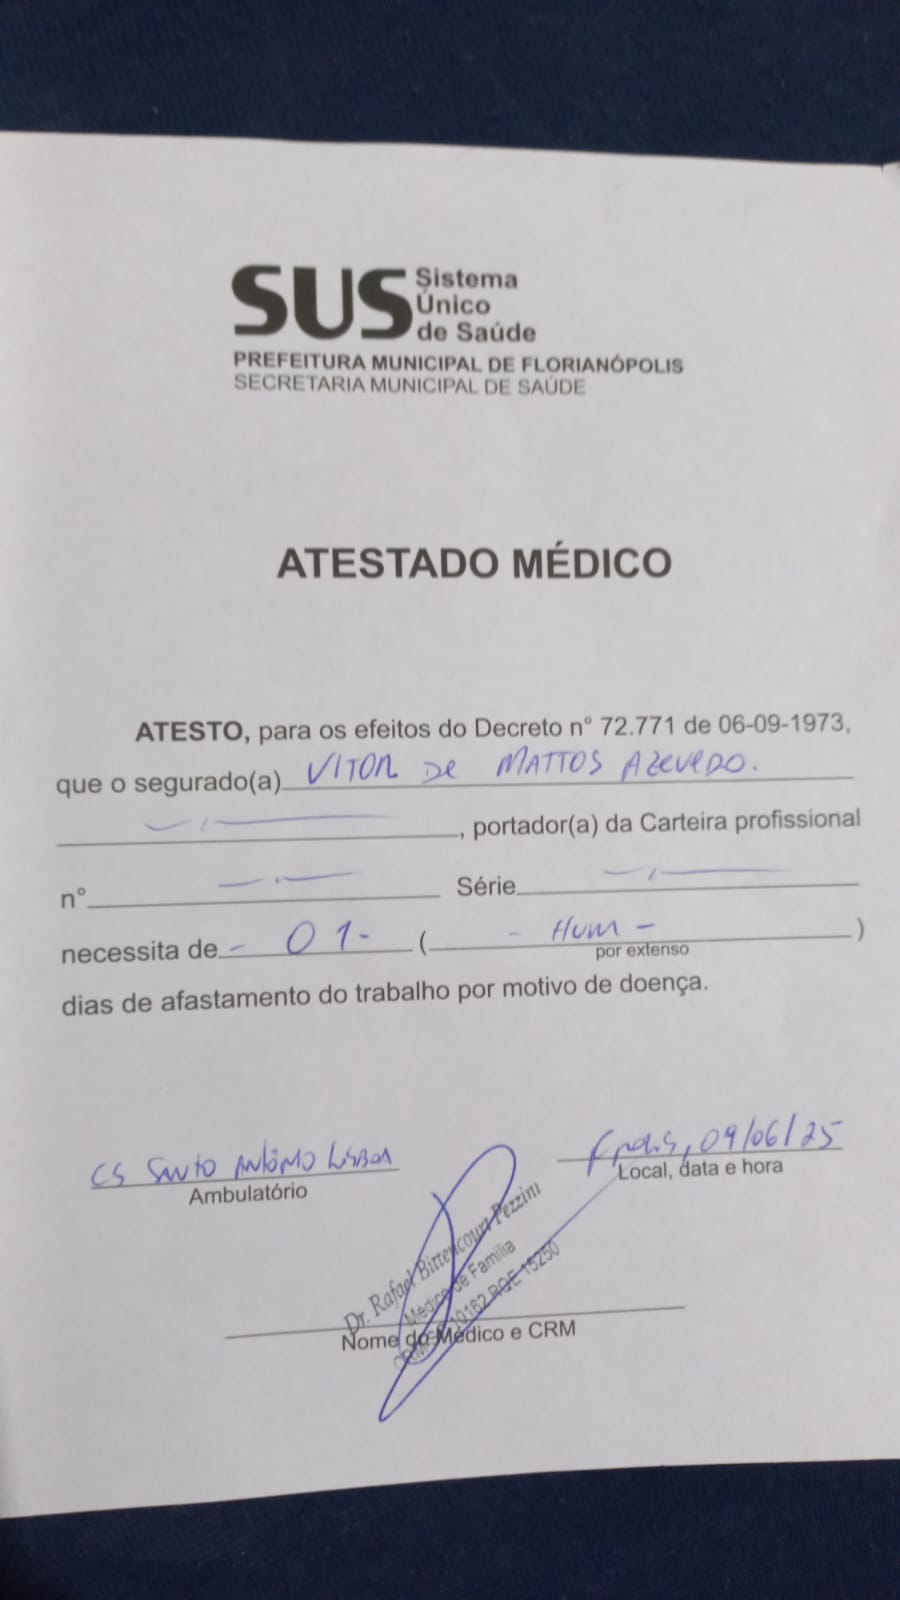 SUS Sistema
Único
de Saúde
PREFEITURA MUNICIPAL DE FLORIANÓPOLIS
SECRETARIA MUNICIPAL DE SAÚDE
ATESTADO MÉDICO
ATESTO, para os efeitos do Decreto n° 72.771 de 06-09-1973,
que o segurado(a) VITOR DE MATTOS AZEVEDO.
, portador(a) da Carteira profissional
n° Série
necessita de - 01- ( - HUM - )
por extenso
dias de afastamento do trabalho por motivo de doença.
CS SANTO ANTÔNIO LISBOA
Ambulatório
Fpolis, 09/06/25
Local, data e hora
Dr. Rafael Bittencourt Pezzini
Médico de Família
10162 RQE 15250
Nome do Médico e CRM